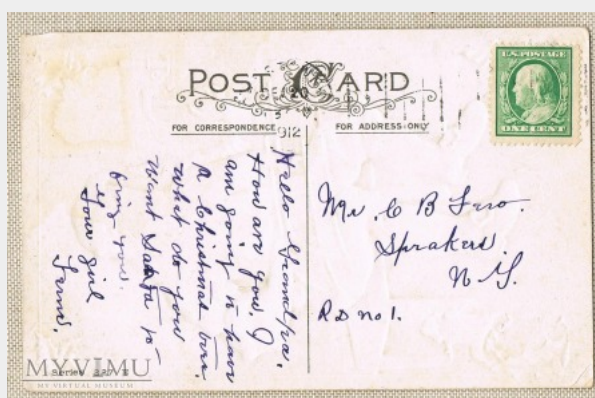 POST CARD
20
FOR CORRESPONDENCE
912
FOR ADDRESS ONLY
U.S. POSTAGE
ONE CENT
Hello Grandpa,
How are you. I
am going to have
a Christmas tree
what do you
want Santa to
bring you.
Your girl
Fern.
Mr. C B Fero.
Sprakers.
N. Y.
R D no 1.
Series
MYVIMU
MY VIRTUAL MUSEUM